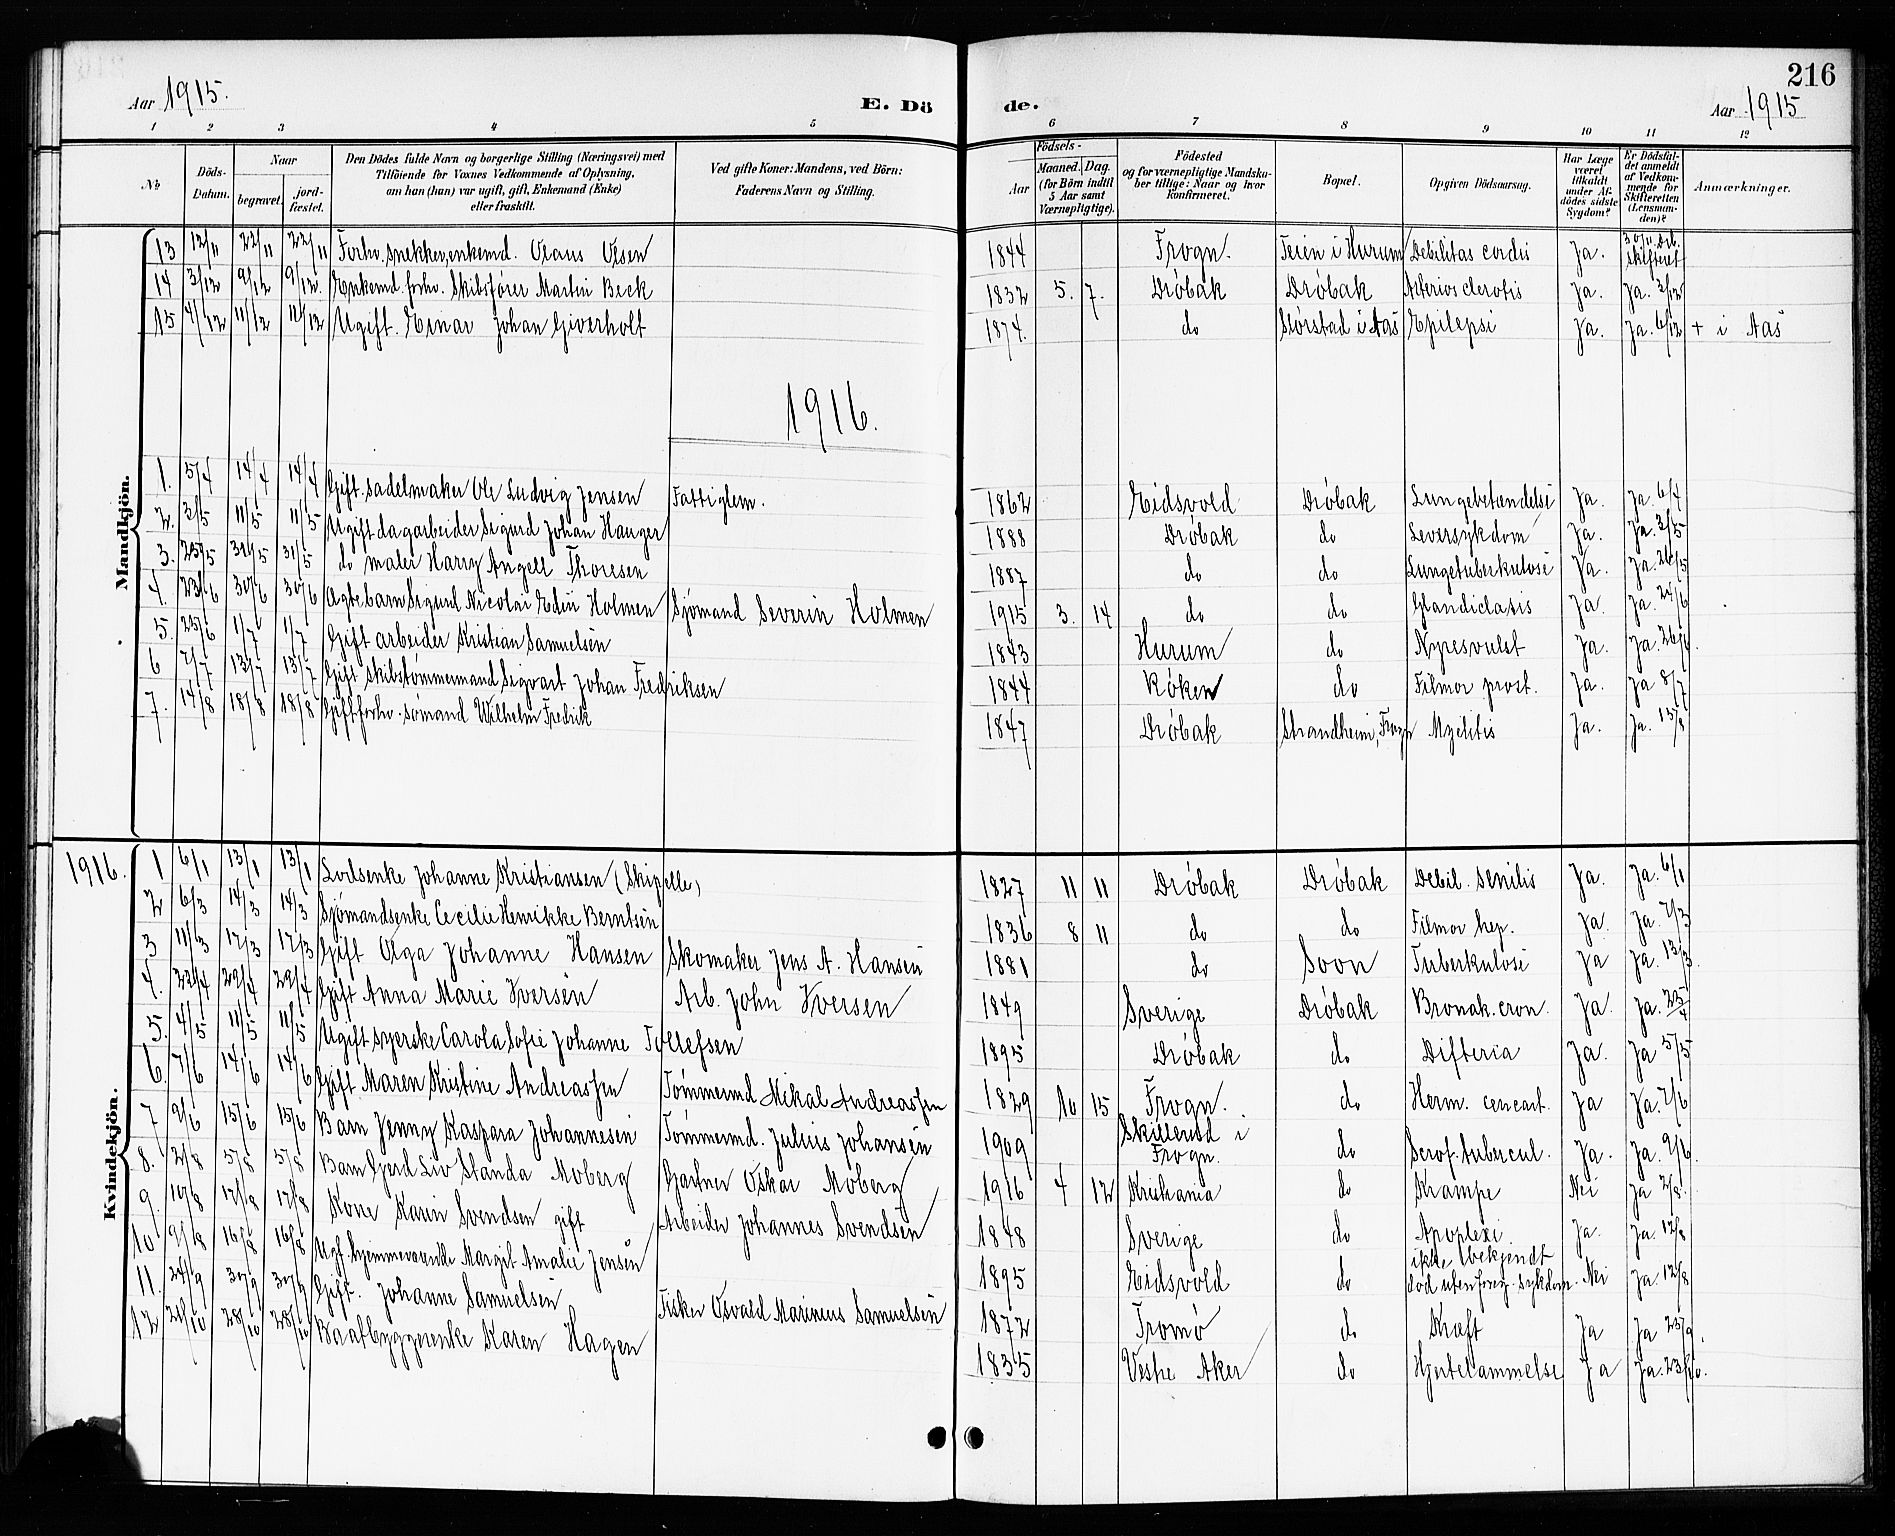 216
Aar 1915.
E. Dö
de.
Aar 1915
1 2 3 4 5 6 7 8 9 10 11 12
No
Döds-Datum.
Naar
begravet.
jord-fæstet.
Den Dödes fulde Navn og borgerlige Stilling (Næringsvei) med Tilföiende for Voxnes Vedkommende af Oplysning, om han (hun) var ugift, gift, Enkemand (Enke) eller fraskilt.
Ved gifte Koner: Mandens, ved Börn: Faderens Navn og Stilling.
Födsels-
Aar
Maaned. Dag. (for Börn indtil 5 Aar samt Værnepligtige).
Födested og for værnepligtige Mandskaber tillige: Naar og hvor konfirmeret.
Bopæl.
Opgiven Dödsaarsag.
Har Læge været tilkaldt under Afdödes sidste Sygdom?
Er Dödsfaldet anmeldt af Vedkommende for Skifteretten (Lensmanden)?
Anmærkninger.
Mandkjön.
13 12/11 22/11 22/11 Forhv. snekker, enkemd. Olaus Olsen 1844 Frogn. Teien i Hurum Debilitas cordis Ja. 30/11 Drb. skifteret
14 3/12 9/12 9/12. Enkemd. forhv. Skibsfører Martin Beck 1832 5. 7. Drøbak Drøbak Arteriosclerotis Ja. Ja. 3/12
15 4/12 11/12 11/12 Ugift. Einar Johan Giverholt 1874. do Storstad i Aas Epilepsi Ja. Ja. 6/12 + i Aas
1916.
1. 5/4 14/4 14/4 Gift. Sadelmaker Ole Ludvig Jensen Fattiglem. 1862 Eidsvold Drøbak Lungebetændelse Ja. Ja. 6/4
2. 3/5 11/5 11/5 Ugift dagarbeider Sigurd Johan Hauger 1888 Drøbak do Leversykdom Ja. Ja. 3/5
3. 25/5 31/5 31/5 do maler Harry Angell Thoresen 1887 do do Lungetuberkulose Ja. Ja. 26/5
4. 23/6 30/6 30/6 Ægtebarn Sigurd Nicolai Edin Holmen Sjømand Severin Holmen 1915 3. 14 do do Ja. Ja. 24/6
5. 25/6 1/7 1/7 Gift arbeider Kristian Samuelsen 1843 Hurum do Nyresvulst Ja. Ja. 26/6.
6 7/7 13/7 13/7 Gift skibstømmermand Sigvart Johan Fredriksen 1844 Røken do Filmor prost. Ja. Ja 8/7
7. 14/8 18/8 18/8 Gift forhv. sømand Wilhelm Fredrik 1847 Drøbak Strandheim, Frogn Myelitis Ja. Ja. 15/8
1916.
Kvindekjön.
1 6/1 13/1 13/1 Lodsenke Johanne Kristiansen (Skipelle) 1827 11 11 Drøbak Drøbak Debil. senilis Ja. Ja. 6/1
2 6/3 14/3 14/3 Sjømandsenke Cecilie Henrikke Berntsen 1836 8 11 do do Filmor hep. Ja. Ja. 7/3
3 11/3 17/3 17/3 Gift Olga Johanne Hansen Skomaker Jens A. Hansen 1881 do Soon Tuberkulose Ja Ja. 13/3.
4. 22/4 29/4 29/4 Gift Anna Marie Iversen Arb. John Iversen 1849 Sverige Drøbak Bronak. cron. Ja Ja. 25/4
5. 4/5 11/5 11/5 Ugift syerske Carola Sofie Johanne Tollefsen 1895 Drøbak do Difteria Ja. Ja 5/5
6. 7/6 14/6 14/6 Gift Maren Kristine Andreassen Tømmermd Mikal Andreassen 1829 10 15 Frogn. do Herm. Ja Ja. 7/6
7 9/6 15/6 15/6 Barn Jenny Kaspara Johannesen Tømmermd. Julius Johansen 1909 Skillerud i Frogn. do Scrof. tubercul. Ja. Ja. 9/6.
8. 2/8 5/8 5/8 Barn Gerd Liv Standa Moberg Gartner Oskar Moberg 1916 4 12 Kristiania do Krampe Nei Ja 2/8.
9. 10/8 17/8 17/8 Kone Karin Svendsen gift Arbeider Johannes Svendsen 1848 Sverige do Apoplexi. Ja. Ja. 12/8
10 9/8 16/8 16/8 Ugf. hjemmeværende Margit Amalie Jensen 1895 Eidsvold do ikke bekjendt død uten foreg. sykdom. Nei Ja. 12/8
11. 24/9 30/9 30/9 Gift. Johanne Samuelsen Fisker Osvald Marinius Samuelsen 1872 Tromø do Kræft Ja Ja 25/9.
12 21/10 28/10 28/10 Baatbyggerenke Karen Hagen 1835 Vestre Aker do Hjertelammelse Ja Ja. 23/10.